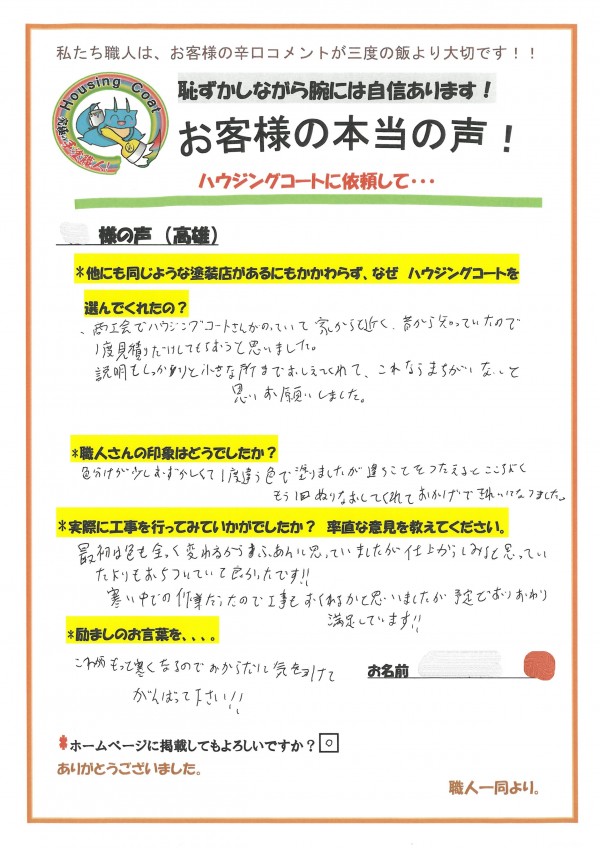 私たち職人は、お客様の辛口コメントが三度の飯より大切です！！
Housing Coat
恥ずかしながら腕には自信あります！
お客様の本当の声！
ハウジングコートに依頼して・・・
様の声（高雄）
＊他にも同じような塗装店があるにもかかわらず、なぜ ハウジングコートを
選んでくれたの？
、商工会でハウジングコートさんがのっていて 家からも近く、昔から知っていたので
1度見積りだけしてもらおうと思いました。
説明もしっかりと小さな所までおしえてくれて、これならまちがいないと
思いお願いしました。
＊職人さんの印象はどうでしたか？
色分けが少しむずかしくて1度違う色で塗りましたが違うことをつたえるとこころよく
もう1回ぬりなおしてくれておかげで きれいになりました。
＊実際に工事を行ってみていかがでしたか？ 率直な意見を教えてください。
最初は色も全く変わるから ふあんに思っていましたが 仕上がりをみると思ってい
たよりもおちついていて良かったです!!
寒い中での作業だったので工事もおくれるかと思いましたが 予定どおりおわり
満足しています!!
＊励ましのお言葉を、、、。
これからもって寒くなるのでおからだに気を付けて
がんばって下さい!!
お名前
＊ホームページに掲載してもよろしいですか？ ○
ありがとうございました。
職人一同より。